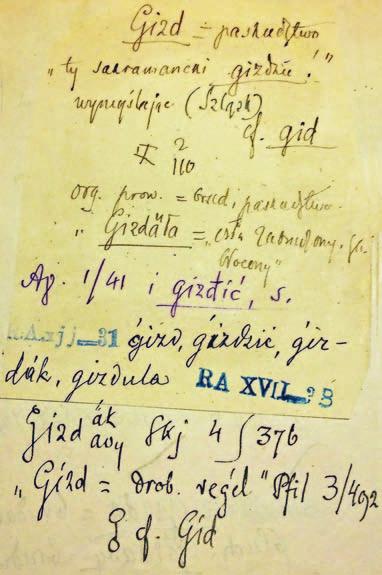 Gizd = paskudztwo
„ty sakramancki giździe!"
wymyślając (Szląsk)
cf. gid
IX 2
110
org. prow. = brud, paskudztwo.
„Gizdäła = „człk zabrudzony, za-
błocony"
Ap. 1/41 i giździć, s.
R.A. xjj_31 gizd, giździć, giz-
dák, gizdula RA XVII_38
Gizd ák
awy Skj 4 376
„Gizd = drob. vegel" Pfil 3/492
cf. Gid